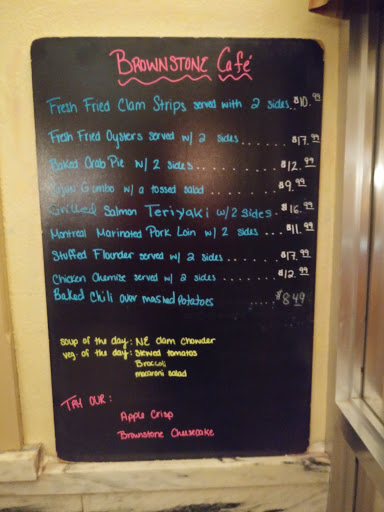 Brownstone Café
Fresh Fried Clam Strips served with 2 sides.. $10.99
Fresh Fried Oysters served w/ 2 sides...... $17.99
Baked Crab Pie w/ 2 sides........ $12.99
Gumbo w/ a tossed salad ........ $9.99
Grilled Salmon Teriyaki w/ 2 sides. $16.99
Montreal Marinated Pork Loin w/ 2 sides ... $11.99
Stuffed Flounder served w/ 2 sides....... $17.99
Chicken Chemise served w/ 2 sides ........ $12.99
Baked Chili over mashed potatoes .... $8.49
soup of the day: NE clam chowder
veg. of the day: Stewed tomatos
Broccoli
macaroni salad
Try our:
Apple Crisp
Brownstone Cheesecake